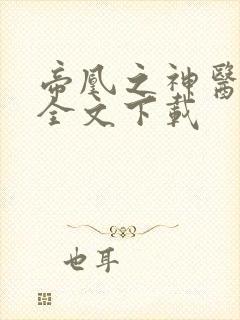 帝凰之神醫
全文下載
也耳